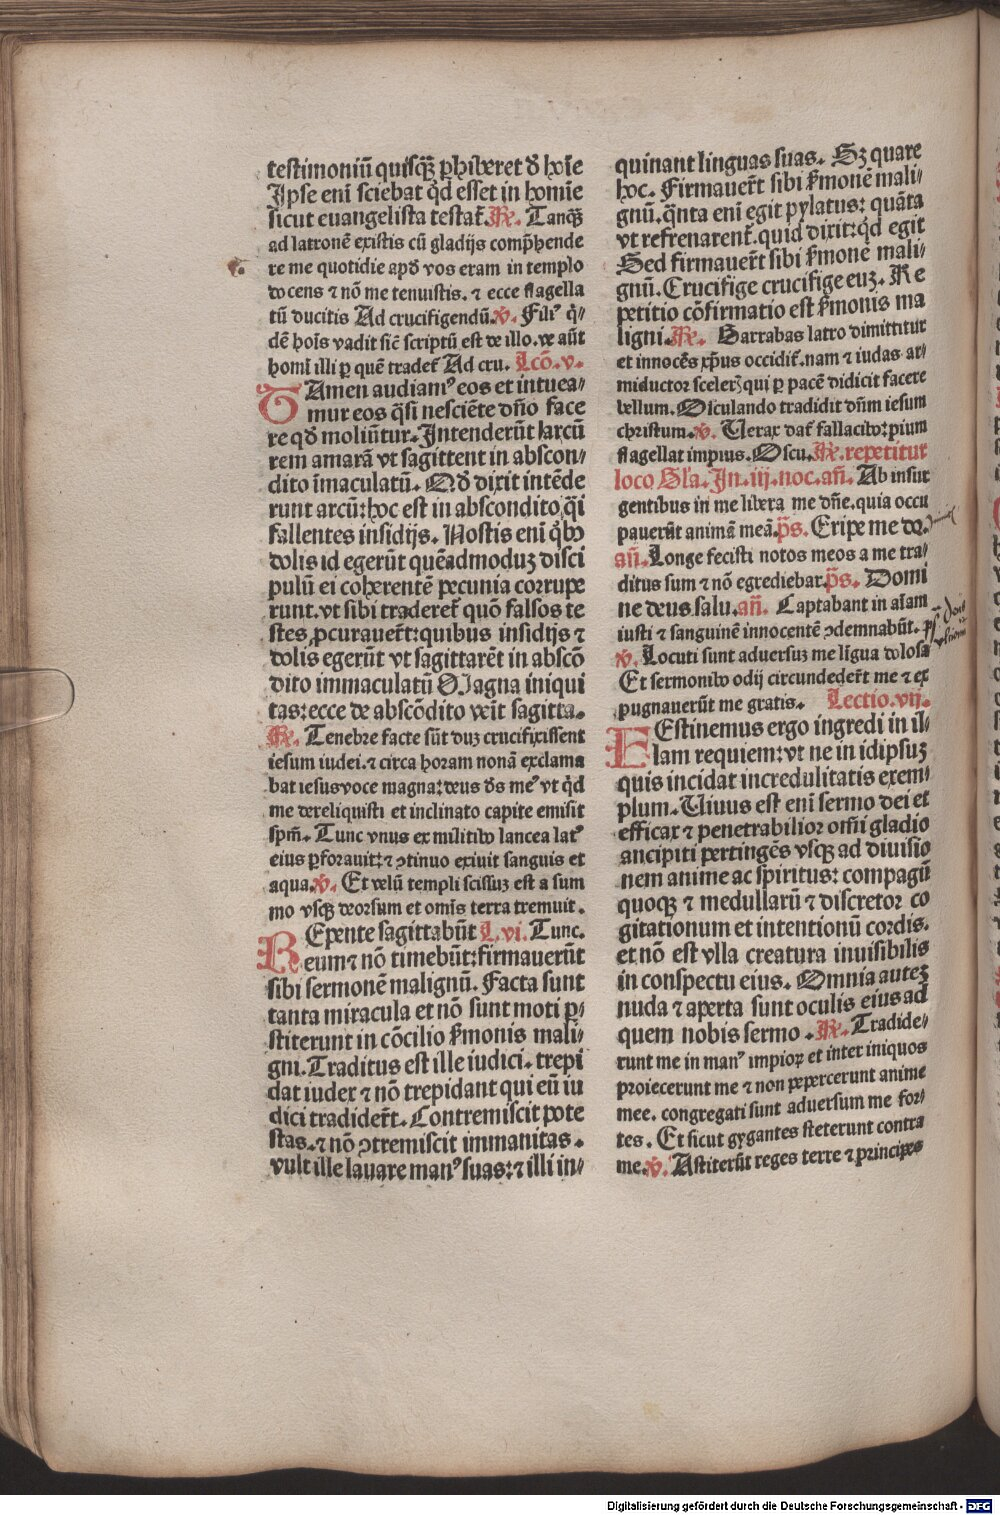 testimoniū quisqꝫ ꝑhiberet ð hoīe
Ipse enī sciebat qd̄ esset in homīe
sicut euangelista testat᷑. ℟. Tanqꝫ
ad latronē existis cū gladijs comp̄hende
re me quotidie apd̄ vos eram in templo
docens ⁊ nō me tenuistis. ⁊ ecce flagella
tū ducitis Ad crucifigendū. ℣. Filiꝰ q̇⸗
dē hoīs vadit sic̄ scriptū est de illo. ve aūt
homī illi ꝑ quē tradet᷑ Ad cru. Lcō. v.
TAmen audiamꝰ eos et intuea⸗
mur eos q̄si nesciēte dn̄o face
re qd̄ moliūtur. Intenderūt ꝛarcū
rem amarā vt sagittent in abscon⸗
dito īmaculatū. Qd̄ dixit intēde
runt arcū: hoc est in abscondito, q̄i
fallentes insidijs. Nostis enī qͥbꝰ
dolis id egerūt quēadmoduꝫ disci
pulū ei coherentē pecunia corrupe
runt. vt sibi traderet᷑ quō falsos te
stes ꝓcurauer̄t: quibus insidijs ⁊
dolis egerūt vt sagittarēt in abscō
dito immaculatū Magna iniqui
tas: ecce de abscōdito veīt sagitta.
℟. Tenebre facte sūt duꝫ crucifixissent
iesum iudei. ⁊ circa horam nonā exclama
bat iesus voce magna: deus ds̄ meꝰ vt qd̄
me dereliquisti et inclinato capite emisit
spm̄. Tunc vnus ex militibꝰ lancea latꝰ
eius ꝑforauit: ⁊ ꝯtinuo exiuit sanguis et
aqua. ℣. Et velū templi scissuꝫ est a sum
mo vsqꝫ deorsum et omīs terra tremuit.
REpente sagittabūt L. vi. Tunc.
eum ⁊ nō timebūt: firmauerūt
sibi sermonē malignū. Facta sunt
tanta miracula et nō sunt moti ꝑ⸗
stiterunt in cōcilio s̄monis mali⸗
gni. Traditus est ille iudici. trepi
dat iudex ⁊ nō trepidant qui eū iu
dici tradider̄t. Contremiscit pote
stas. ⁊ nō ꝯtremiscit immanitas.
vult ille lauare manꝰ suas: ⁊ illi in⸗
quinant linguas suas. Sꝫ quare
hoc. Firmauer̄t sibi s̄monē mali⸗
gnū. q̄nta enī egit pylatus: quāta
vt refrenarent᷑. quid dixit: qd̄ egit
Sed firmauer̄t sibi s̄mone mali⸗
gnū. Crucifige crucifige euꝫ. Re
petitio cōfirmatio est s̄monis ma
ligni. ℟. Barrabas latro dimittitur
et innocēs xp̄us occidit᷑. nam ⁊ iudas ar⸗
miductor sceleꝝ qui ꝑ pacē didicit facere
bellum. Osculando tradidit dn̄m iesum
christum. ℣. Uerax dat᷑ fallacibꝰ: pium
flagellat impius. Oscu. ℟. repetitur
loco Gl'a. In. iij. noc. an̄. Ab insur
gentibus in me libera me dn̄e. quia occu
pauerūt animā meā. ps̄. Eripe me do.
an̄. Longe fecisti notos meos a me tra⸗
ditus sum ⁊ nō egrediebar. ps̄. Domi
ne deus salu. an̄. Captabant in aīam
iusti ⁊ sanguinē innocentē ꝯdemnabūt.
℣. Locuti sunt aduersuꝫ me līgua dolosa
Et sermonibꝰ odij circundeder̄t me ⁊ ex
pugnauerūt me gratis. Lectio. vij.
FEstinemus ergo ingredi in il⸗
lam requiem: vt ne in idipsuꝫ
quis incidat incredulitatis exem⸗
plum. Uiuus est enī sermo dei et
efficax ⁊ penetrabilior om̄i gladio
ancipiti pertingēs vsqꝫ ad diuisio
nem anime ac spiritus: compagū
quoqꝫ ⁊ medullarū ⁊ discretor co
gitationum et intentionū cordis.
et nō est vlla creatura inuisibilis
in conspectu eius. Omnia auteꝫ
nuda ⁊ aperta sunt oculis eius ad
quem nobis sermo. ℟. Tradide⸗
runt me in manꝰ impioꝝ et inter iniquos
proiecerunt me ⁊ non pepercerunt anime
mee. congregati sunt aduersum me for⸗
tes. Et sicut gygantes steterunt contra
me. ℣. Astiterūt reges terre ⁊ principes
Digitalisierung gefördert durch die Deutsche Forschungsgemeinschaft - DFG